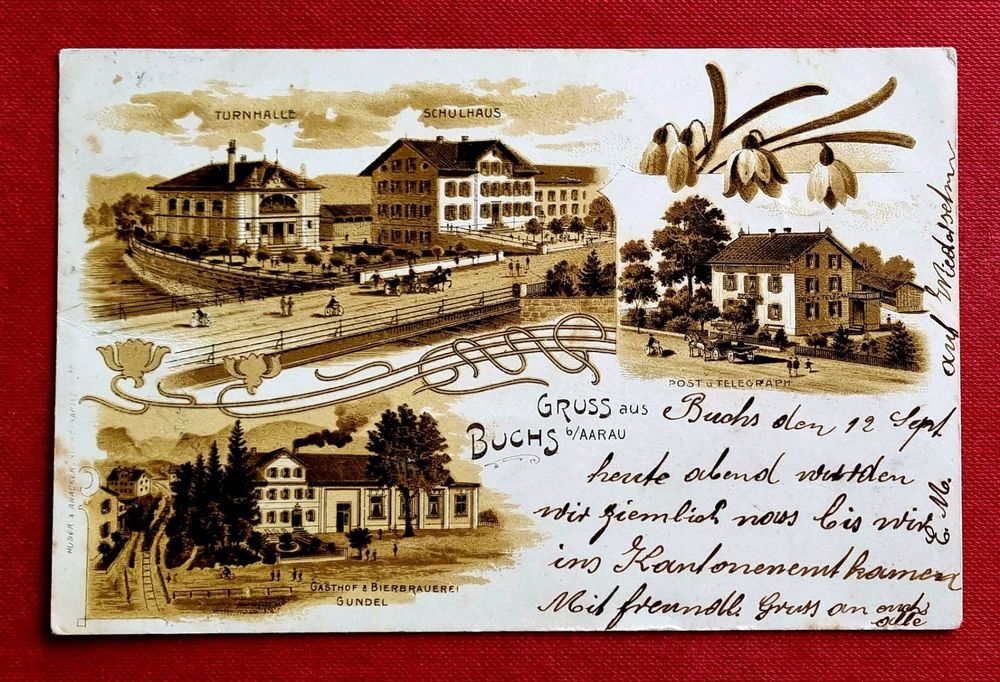 TURNHALLE
SCHULHAUS
POST u TELEGRAPH
GRUSS aus
BUCHS b/AARAU
GASTHOF & BIERBRAUEREI
GUNDEL
Buchs den 12 Sept
heute abend wurden
wir ziemlich nass bis wir
ins Kantonement kamen
Mit freundl. Gruss an euch
alle
E. M.
auf Wiedersehn